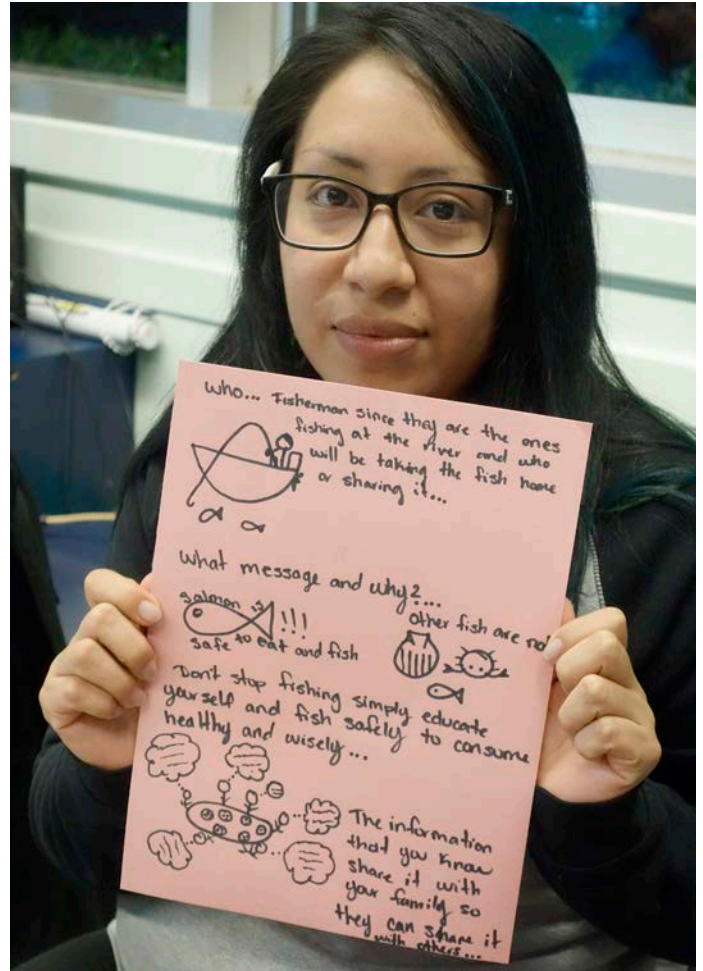 Who... Fisherman since they are the ones
fishing at the river and who
will be taking the fish home
or sharing it...
What message and why?...
Salmon is
!!!
safe to eat and fish
other fish are not
Don't stop fishing simply educate
yourself and fish safely to consume
healthy and wisely...
The information
that you know
share it with
your family so
they can share it
with others...